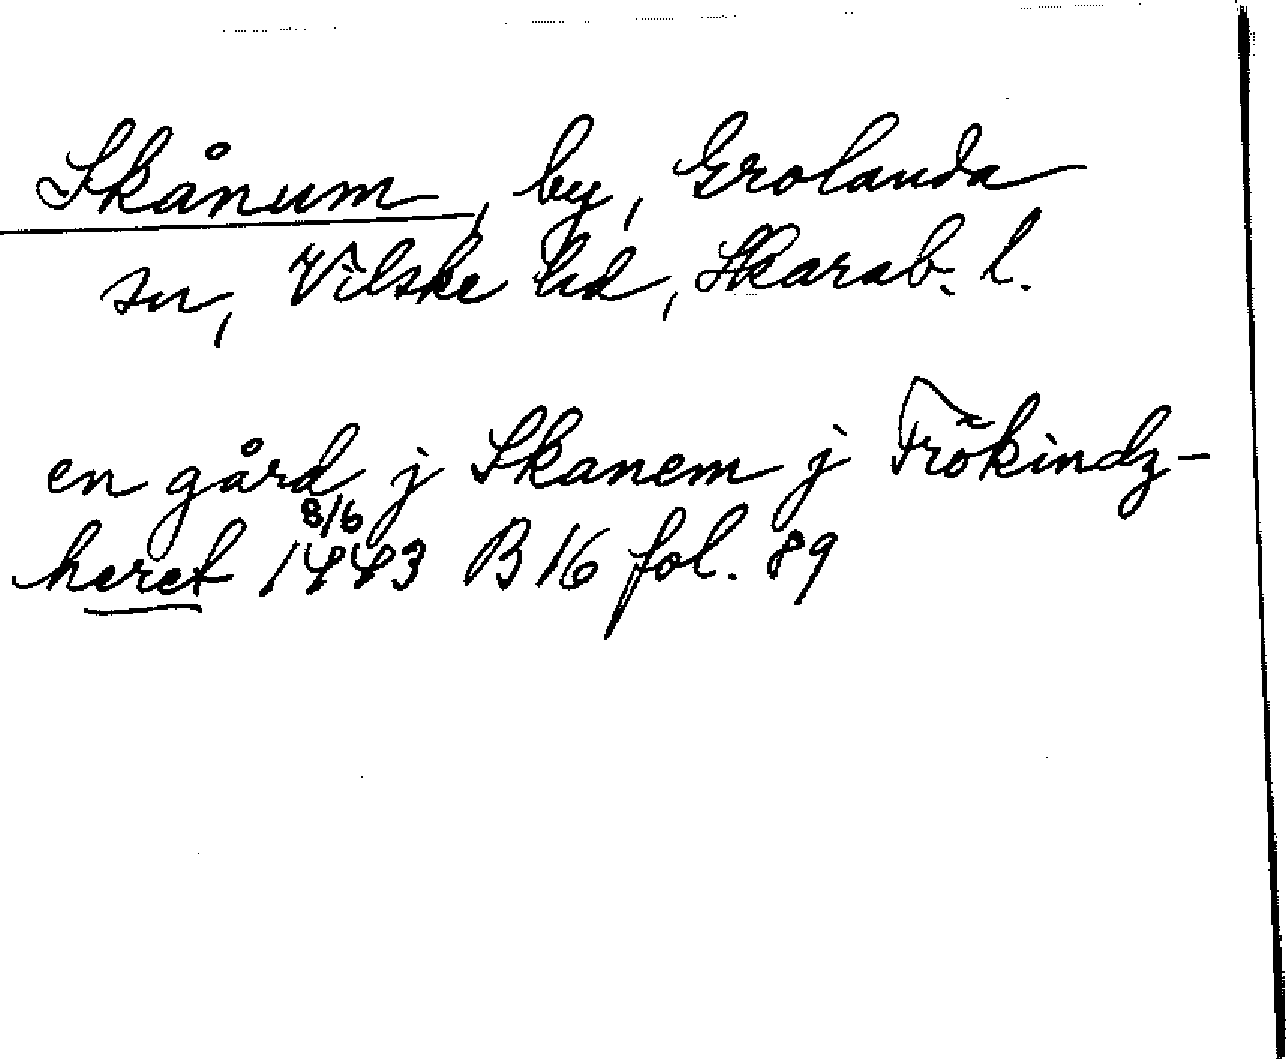 Skånum, by, Grolanda
sn, Vilske hd, Skarab. l.
en gård j Skanem j Frökindz-
heret 8/6 1443 B 16 fol. 89